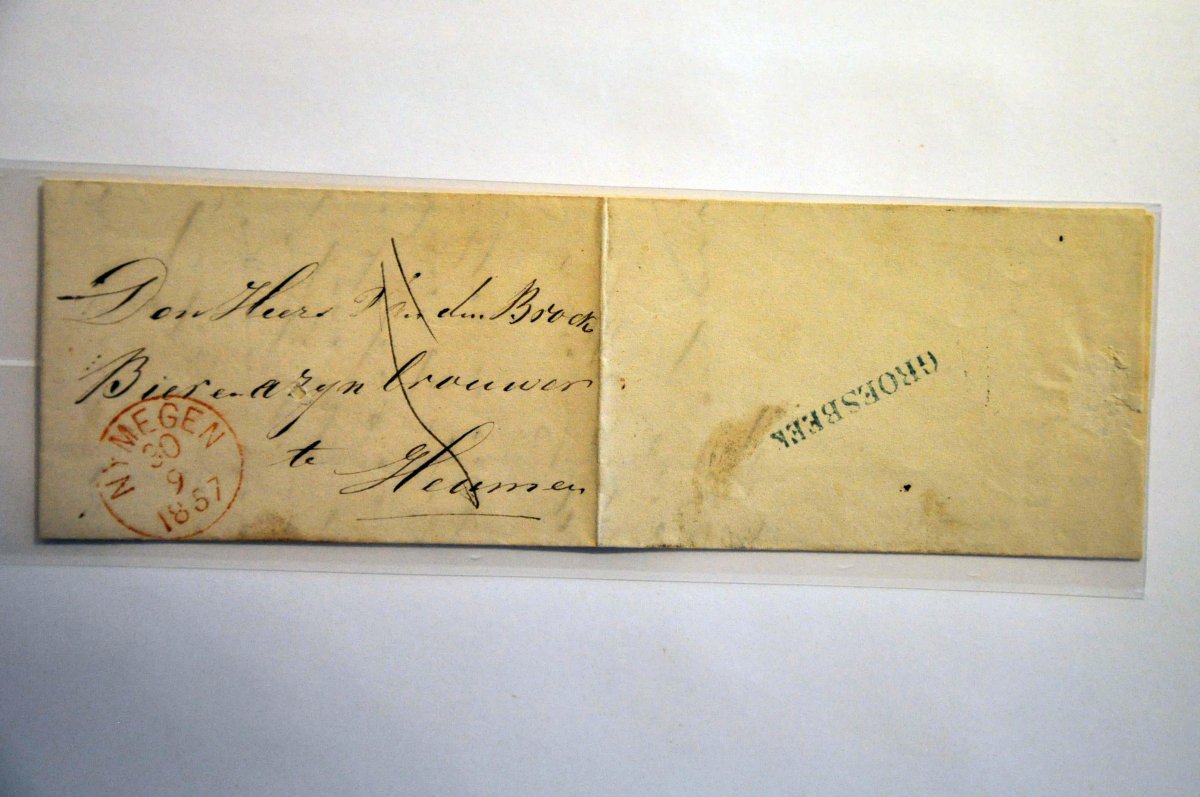 Den Heere Van den Broek
Bier en azyn brouwer
te Heumen
NYMEGEN
30
9
1857
GROESBEEK